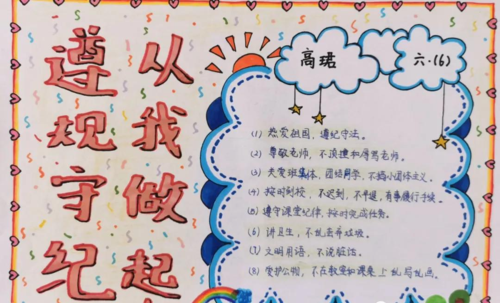 遵规守纪
从我做起
高珺
六·(6)
(1) 热爱祖国，遵纪守法。
(2) 尊敬老师，不顶撞和辱骂老师。
(3) 关爱班集体，团结同学，不搞小团体主义。
(4) 按时到校，不迟到，不早退，有事履行手续。
(5) 遵守课堂纪律，按时完成任务。
(6) 讲卫生，不乱丢弃垃圾。
(7) 文明用语，不说脏话。
(8) 爱护公物，不在教室和课桌上乱写乱画。